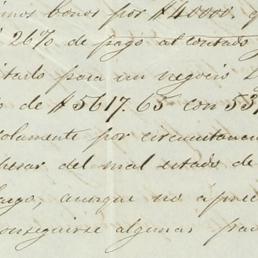 imos bonos por $40000.
26% de pago al contado y
itarlo para un negocio
de $5617.65 con 53%
olamente por circunstancia
pesar del mal estado de
aunque no
onseguirse algunas